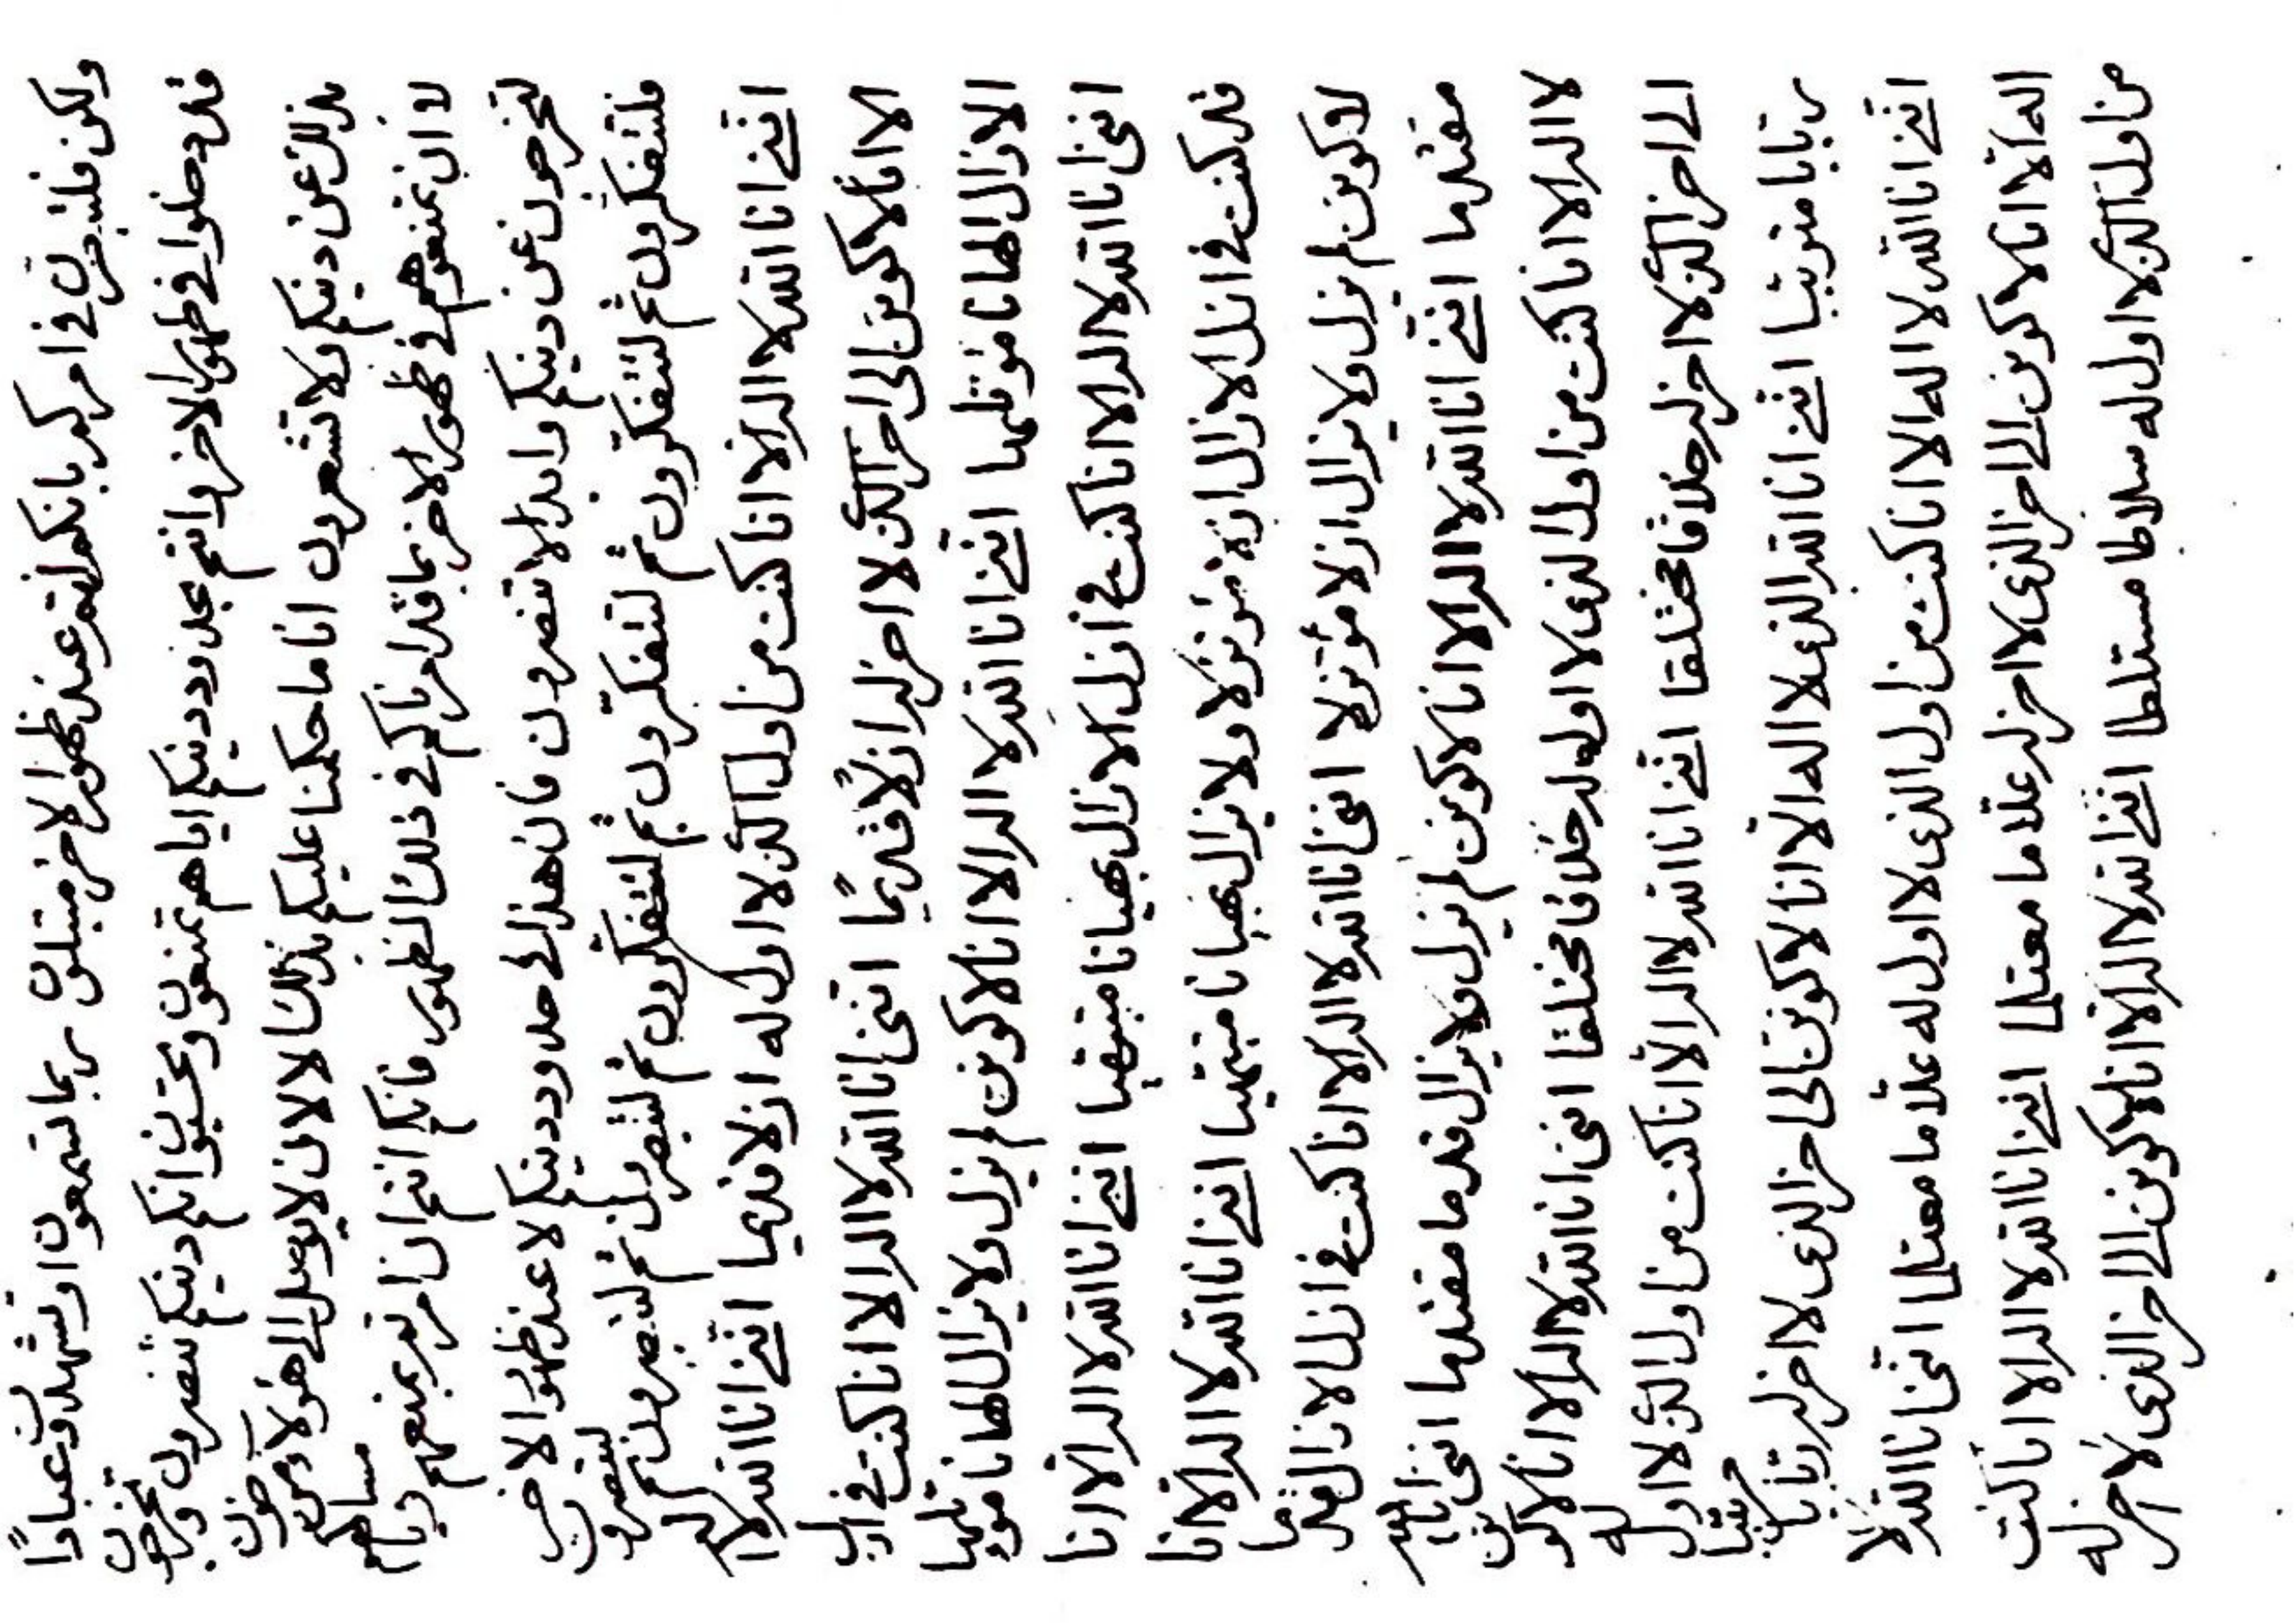 ولكن فلتبصرن في امركم بانكم انتم عند ظهور الاخر مبتلون ربما تسمعون او تشهدون عبادًا
قد دخلوا في ظهور الاخر وانتم بحدود دينكم اياهم تمنعون وتحسبون انكم دينكم تنصرون وتخرجون
بذلك عن دينكم ولا تشعرون انا ما حكمنا عليكم بذلك الا لان لا يوصل الى هؤلاء من حزن
لا ان تمنعوهم في ظهور الاخر بما قد امرناكم في ذلك الظهور فانكم انتم ان امرتم بمنعهم
لتخرجون عن دينكم وابدا لا تنصرون فان هذا لحدود دينكم لا عند ظهور الاخر
فلتتفكرون ثم لتتفكرون ثم لتتفكرون ثم لتتفكرون ثم لتبصرون ثم لتبصرون ثم
انني انا الله لا اله الا انا كنت من اول الذي لا اول له ازلا قديما انني انا الله لا اله
الا انا لاكونن الى اخر الذي لا اخر له ازلًا قديمًا انني انا الله لا اله الا انا كنت في ازل
الازال الهانا مؤتلها انني انا الله لا اله الا انا لاكونن لم يزل ولا يزال الهانا مؤتلها
انني انا الله لا اله الا انا كنت في ازل الازال بهيانا مبتهيا انني انا الله لا اله الا انا
قد كنت في ازل الازال مؤتزلا ولا يزال بهيانا مبتهيا انني انا الله لا اله الا انا
لاكونن لم يزل ولا يزال ازلا مؤتزلا انني انا الله لا اله الا انا كنت في ازل الازال قدما
مقتدما انني انا الله لا اله الا انا لاكونن لم يزل ولا يزال قدما مقتدما انني انا الله
لا اله الا انا كنت من اول الذي لا اول له خلاقا مختلقا انني انا الله لا اله الا انا لاكونن
الى اخر الذي لا اخر له خلاقا مختلقا انني انا الله لا اله الا انا كنت من اول الذي لا اول له
ربابا مرتببا انني انا الله الذي لا اله الا انا لاكونن الى اخر الذي لا اخر له ربابا مرتببا
انني انا الله لا اله الا انا كنت من اول الذي لا اول له علاما معتلما انني انا الله لا
اله الا انا لاكونن الى اخر الذي لا اخر له علاما معتلما انني انا الله لا اله الا انا كنت
من اول الذي لا اول له سلاطا مستلطا انني انا الله لا اله الا انا لاكونن الى اخر الذي لا اخر له